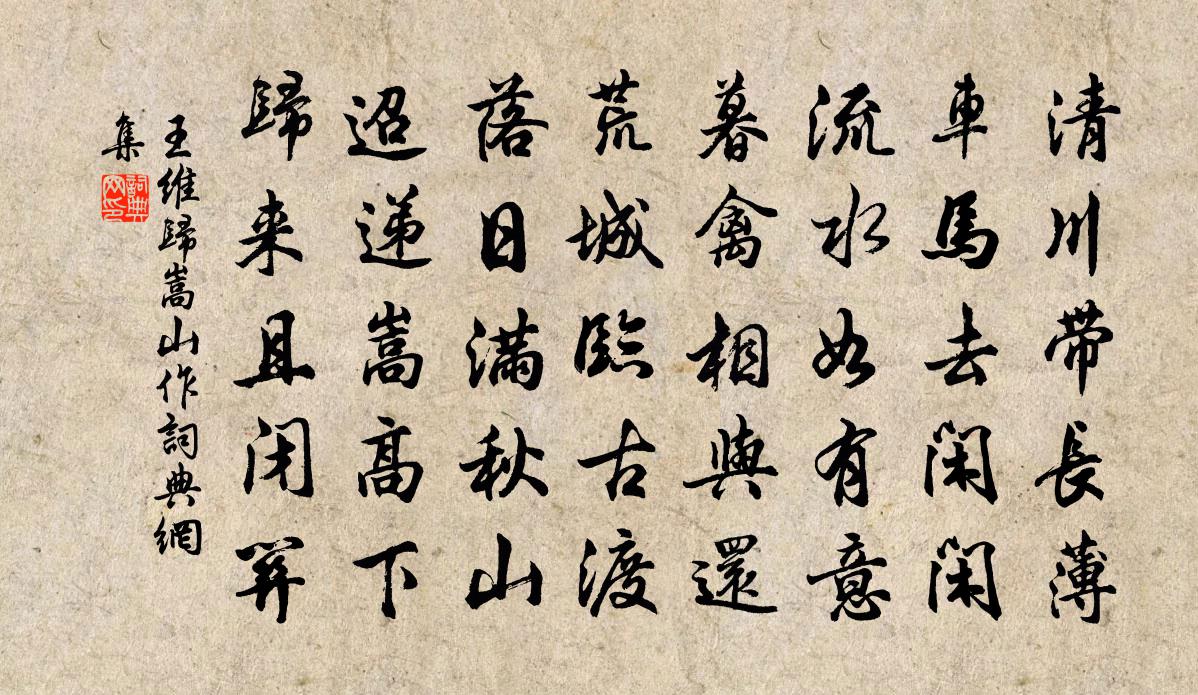 清川帶長薄
車馬去閑閑
流水如有意
暮禽相與還
荒城臨古渡
落日滿秋山
迢遞嵩高下
歸来且閉關
王維歸嵩山作詞典網
集
詞典
网印